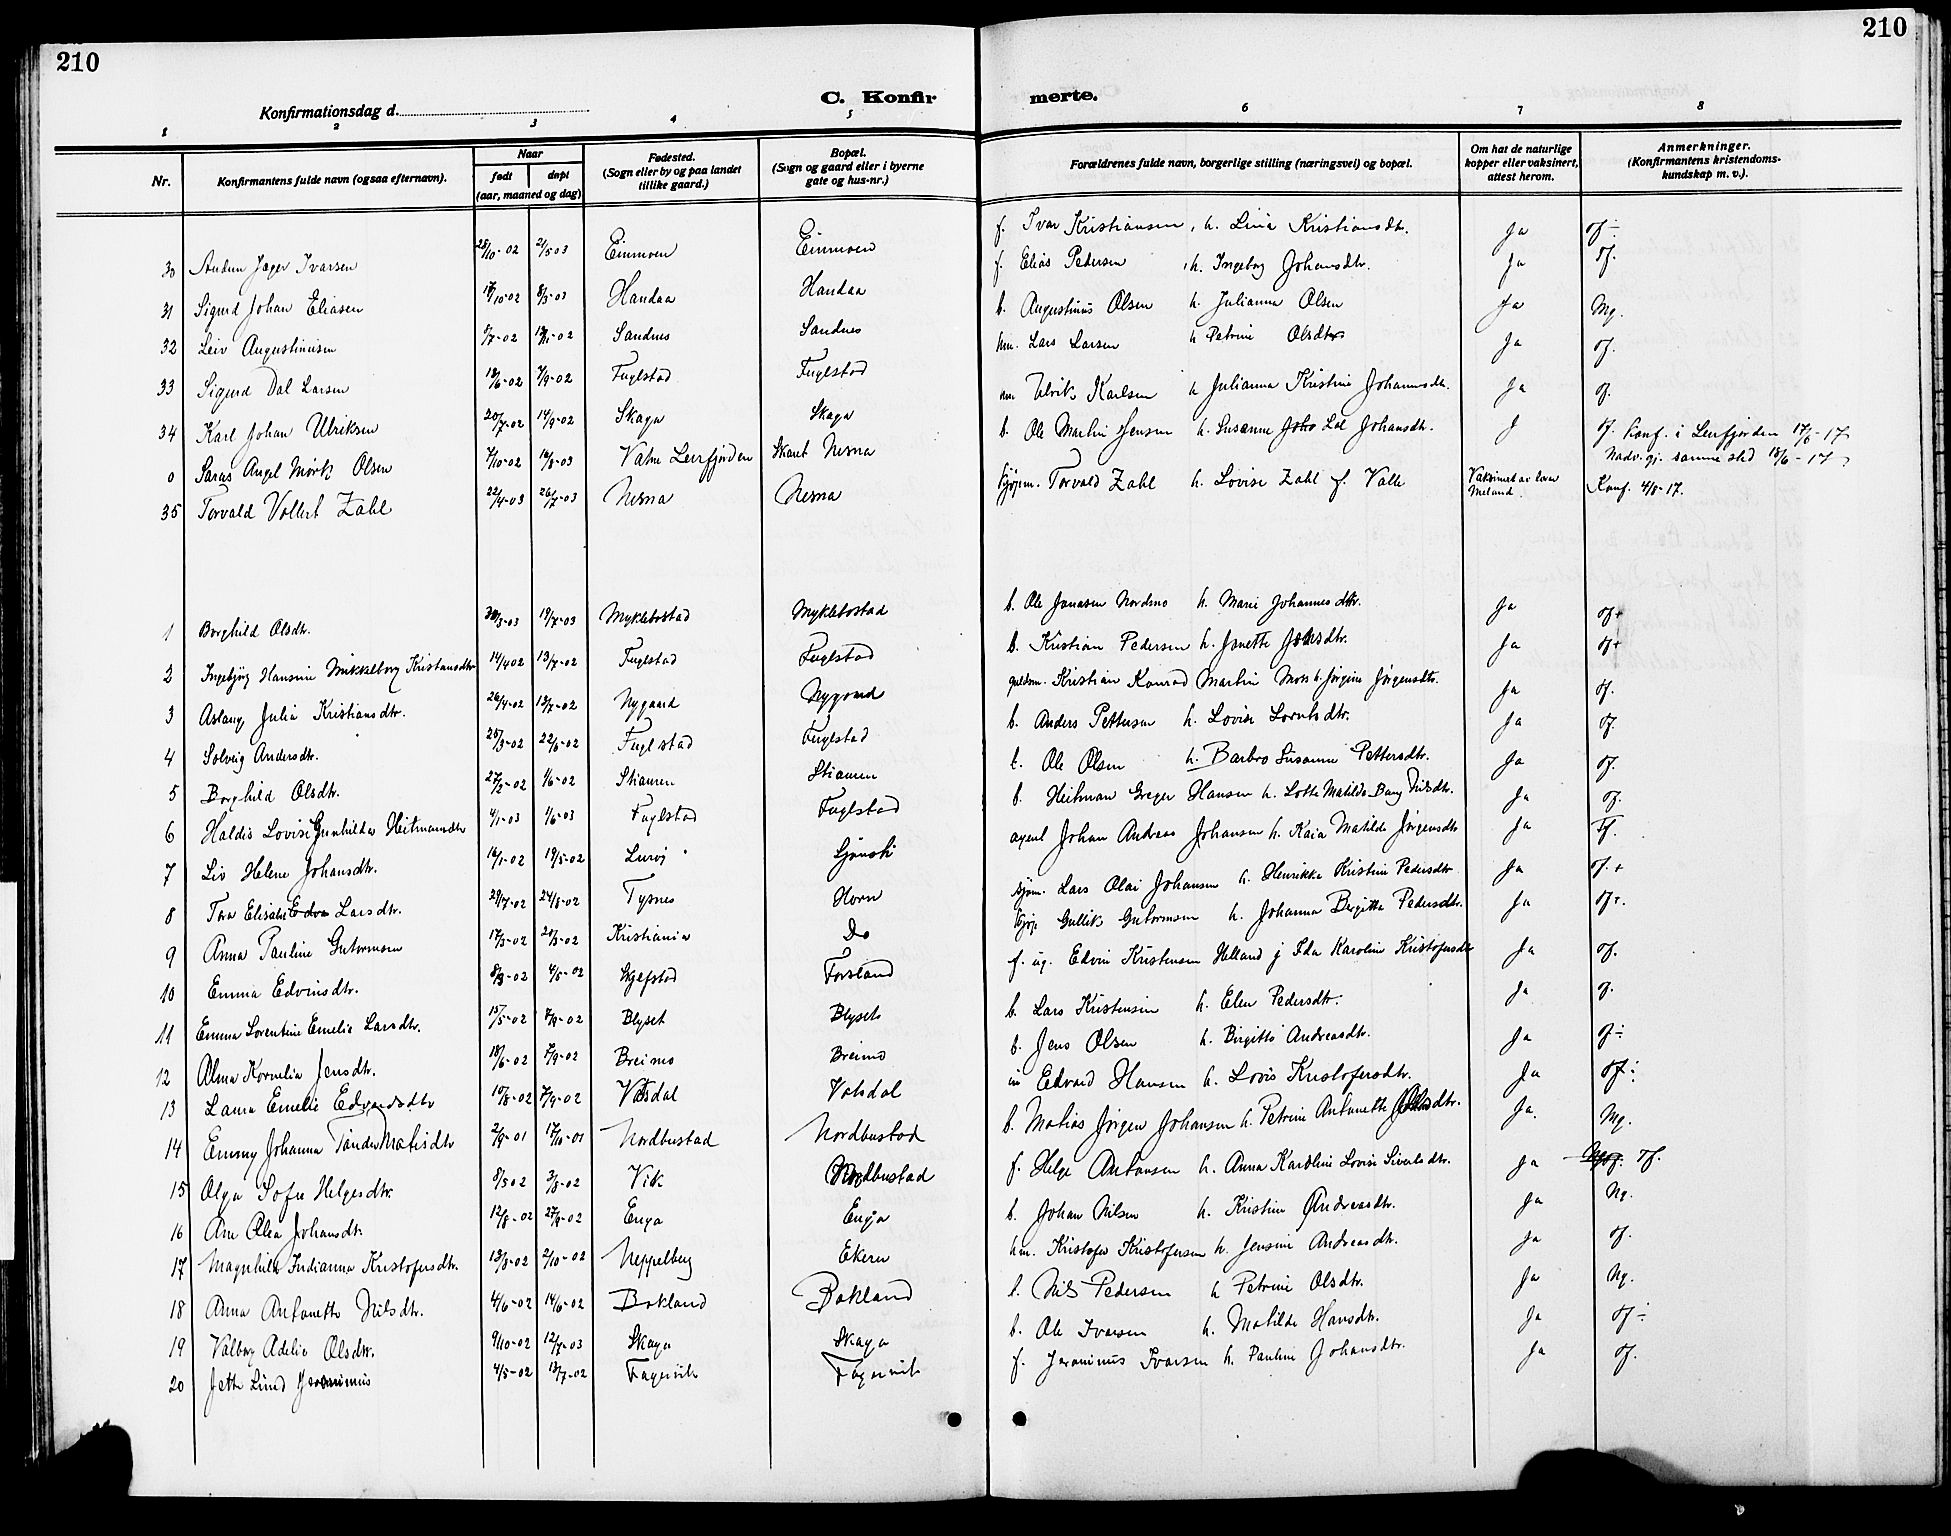 210
210
Konfirmationsdag d.
C. Konfir
merte.
1 2 3 4 5 6 7 8
Nr.
Konfirmantens fulde navn (ogsaa efternavn).
Naar
født
døpt
(aar, maaned og dag)
Fødested.
(Sogn eller by og paa landet
tillike gaard.)
Bopæl.
(Sogn og gaard eller i byerne
gate og hus-nr.)
Forældrenes fulde navn, borgerlige stilling (næringsvei) og bopæl.
Om hat de naturlige
kopper eller vaksinert,
attest herom.
Anmerkninger.
(Konfirmantens kristendoms-
kundskap m. v.).
30 Jæger Ivarsen 28/10-02 2/5 03 Einmoen Einmoen f. Ivar Kristiansen, h. Lina Kristiansdtr. Ja
31 Sigurd Johan Eliasen Handaa Handaa f. Elias Pedersen, h. Ingeborg Johansdtr. Ja
32 Leiv Augustinusen Sandnes Sandnes b. Augustinus Olsen h. Julianna Olsen Ja Mg.
33 Sigurd Dal Larsen Fuglstad Fuglstad hm. Lars Larsen h Petrine Olsdtr Ja
34 Karl Johan Ulriksen 20/7-02 14/9-02 Skaga Skaga Ulrik Karlsen h Julianna Kristine Johannsdtr. Ja
0 Angel Mørk Olsen 7/10-02 Leirfjorden Nesna b. Ole Martin Jensen h. Susanne Johansdtr. J Konf. i Leirfjorden 17/6-17
Nadv. gj. samme sted 18/6-17
35 Torvald Vollert Zahl 22/4-03 26/7-03 Nesna Nesna Torvald Zahl h. Lovise Zahl f. Valle Vaksinert av
Meland. Konf. 4/8-17.
1 Borghild Olsdtr. 30/3-03 19/7-03 Myklebostad Myklebostad b. Ole Jonasen Nordmo h. Marie Johannesdtr. Ja
2 Ingebjørg Hansine Mikkelborg Kristiansdtr 14/4 02 13/7-02 Fuglstad Fuglstad b. Kristian Pedersen h. Janette Ja
3 Aslaug Julia Kristiansdtr. 26/4-02 13/7-02 Nygaard Nygaard guldsm. Kristian Konrad Martin Moss h. Jørgine Jørgensdtr. Ja
4 Solveig Andersdtr. 22/6-02 Fuglstad Fuglstad b. Anders Pettersen h. Lovise Lorntsdtr. Ja
5 Borghild Olsdtr. 27/2-02 1/6-02 Stianren Stianren t. Ole Olsen h. Barbro Susanne Pettersdtr. Ja
6 Haldis Lovise Gunhilda Heitmansdtr 4/1-03 1/6-03 Fuglstad Fuglstad f. Heitman Greger Hansen h. Lotte Matilde Bang Nilsdtr. Ja
7 Liv Helene Johansdtr. 16/1-02 19/5-02 Lurøj agent Johan Andreas Johansen h. Kaia Matilde Jørgensdtr Ja
8 Larsdtr. 29/7-02 24/8-02 Tysnes Horn sjøm. Lars Olai Johansen h. Henrikka Kristine Pedersdtr Ja
9 Anna Pauline Gutormsen 17/3-02 Kristiania Do Gullik Gutormsen h. Johanna Bergitta Pedersdtr. Ja
10 Emma Edvinsdtr. 4/5-02 Forsland f. ug. Edvin Kristensen Helland j Ida Karoline Kristofersdtr Ja
11 Emma Lorentine Emelie Larsdtr. 15/5-02 Blyset Blyset b. Lars Kristensen h. Elen Pedersdtr. Ja
12 Alma Kornelia Jensdtr. 18/6-02 7/9-02 Breimo Breimo b. Jens Olsen h. Birgitte Andreasdtr. Ja
13 Laura Emelie Edvardsdtr 10/8-02 7/9-02 Vatsdal Edvard Hansen h. Lovis Kristofersdtr. Ja
14 Emmy Johanna Tander Matisdtr 2/9-01 17/11-01 Nordbustad Nordbustad b. Matias Jørgen Johansen h. Petrine Antonette Ja. Mg.
15 Olga Sofie Helgesdtr. 8/5 02 3/8-02 Vik Nordbustad f. Helge Antonsen h. Anna Karoline Lovise Sivertsdtr. Ja
16 Ane Olea Johansdtr. 12/8-02 Enga Enga b. Johan Nilsen h. Kristine Andreasdtr. Ja Ng.
17 Magnhild Indianna Kristofersdtr. 2/10-02 Neppelberg Ekeren hm. Kristofer Kristofersen h. Jensine Andreasdtr. Ja
18 Anna Antonette Nilsdtr. 4/6-02 14/6-02 Bakland Bakland Nils Pedersen h Petrine Olsdtr. Ja Ng.
19 Valborg Adelia Olsdtr. 9/10-02 12/7-03 Skaga Skaga b. Ole Ivarsen h. Matilde Hansdtr. Ja
20 Jette Lund Jeronimus 4/5-02 13/7-02 Fagervik Fagervik f. Jeronimus Ivarsen h. Pauline Johansdtr. Ja